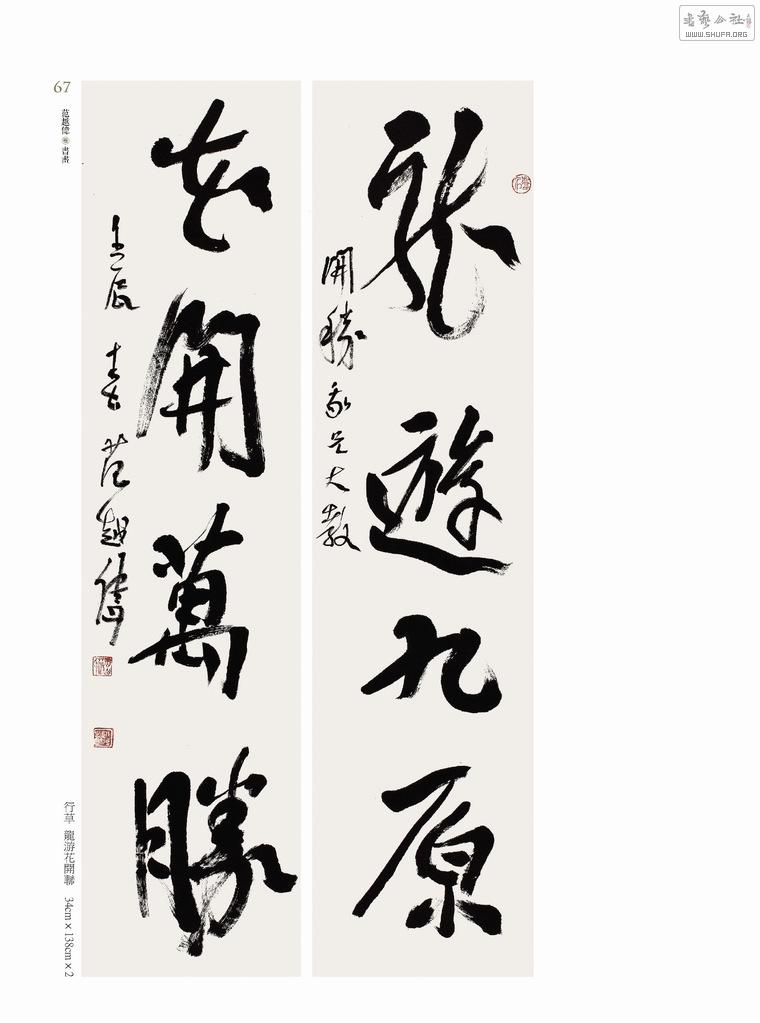 書藝公社
WWW.SHUFA.ORG
龍遊九原
開勝家兄大教
花開萬勝
壬辰春范越偉
67
范越偉 書畫
行草 龍游花開聯 34cm×138cm×2